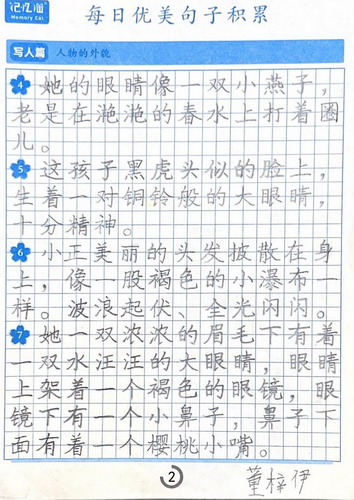 记忆猫
Memory Cat
每日优美句子积累
写人篇 人物的外貌
4 她的眼睛像一双小燕子，
老是在滟滟的春水上打着圈
儿。
5 这孩子黑虎头似的脸上，
生着一对铜铃般的大眼睛，
十分精神。
6 小正美丽的头发披散在身
上，像一股褐色的小瀑布一
样。波浪起伏、全光闪闪。
7 她一双浓浓的眉毛下有着
一双水汪汪的大眼睛，眼睛
上架着一个褐色的眼镜，眼
镜下有一个小鼻子，鼻子下
面有着一个樱桃小嘴。
2
董梓伊